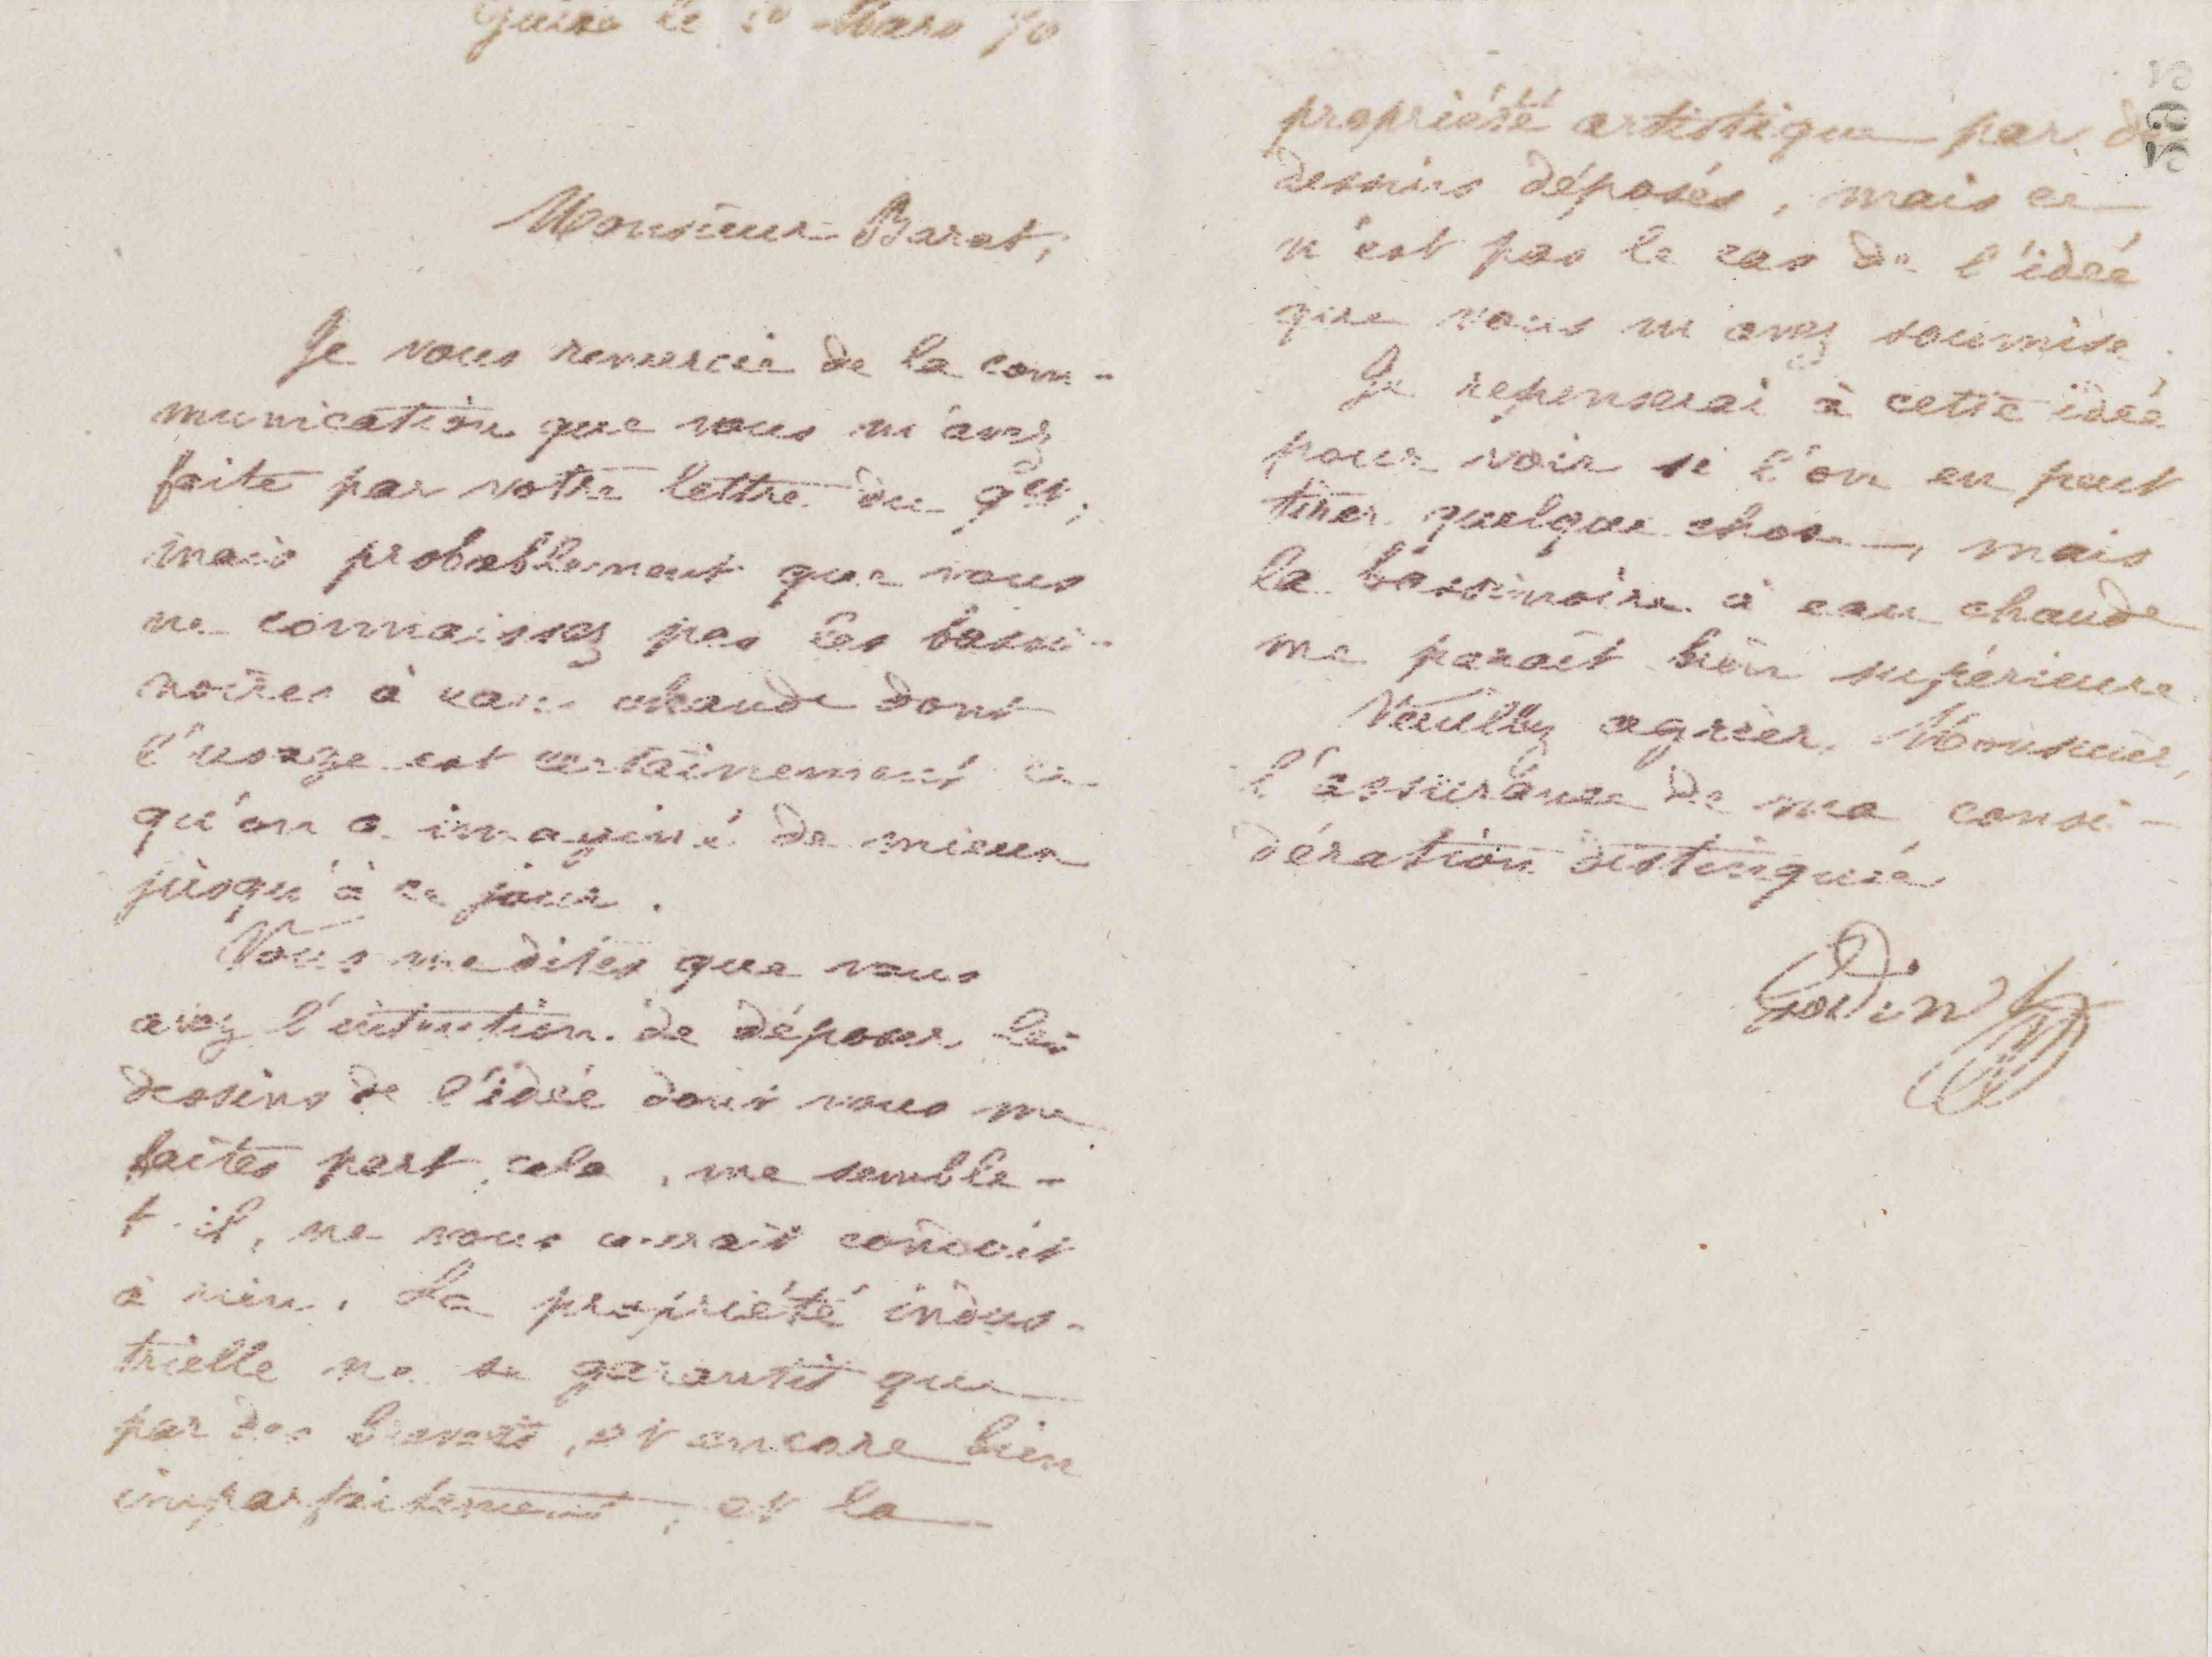 Guise le Mars 70
Monsieur Barat,
Je vous remercie de la com-
munication que vous m'avez
faite par votre lettre du 9 ct,
mais probablement que vous
ne connaissez pas les bassi-
noires à eau chaude dont
l'usage est certainement ce
qu'on a imaginé de mieux
jusqu'à ce jour.
Vous me dites que vous
avez l'intention de déposer les
dessins de l'idée dont vous me
faites part, cela, me semble-
t-il, ne vous aurait conduit
à rien. La propriété indus-
trielle ne se garantit que
par des brevets, et encore bien
imparfaitement, et la
propriété artistique par de
dessins déposés, mais ce
n'est pas le cas de l'idée
que vous m'avez soumise.
Je repenserai à cette idée
pour voir si l'on en peut
tirer quelque chose, mais
la bassinoire à eau chaude
me parait bien supérieure
Veuillez agréer, Monsieur,
l'assurance de ma consi-
dération distinguée
Godin